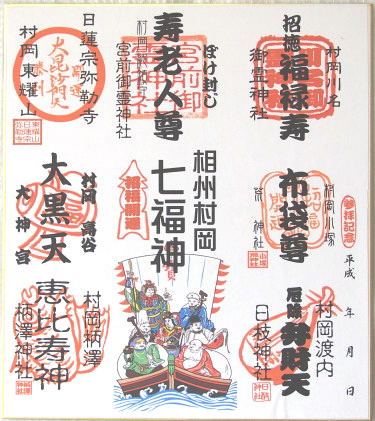 村岡川名
招徳 福禄寿
御霊神社
ぼけ封じ
寿老人尊
宮前御霊神社
開運
大毘沙門天
日蓮宗弥勒寺
村岡東耀山
参拝記念
平成 年 月 日
村岡小塚
布袋尊
神社
相州村岡
七福神
招福開運
村岡 高谷
大黒天
大神宮
村岡渡内
厄除 辨財天
日枝神社
村岡柄澤
恵比寿神
柄澤神社